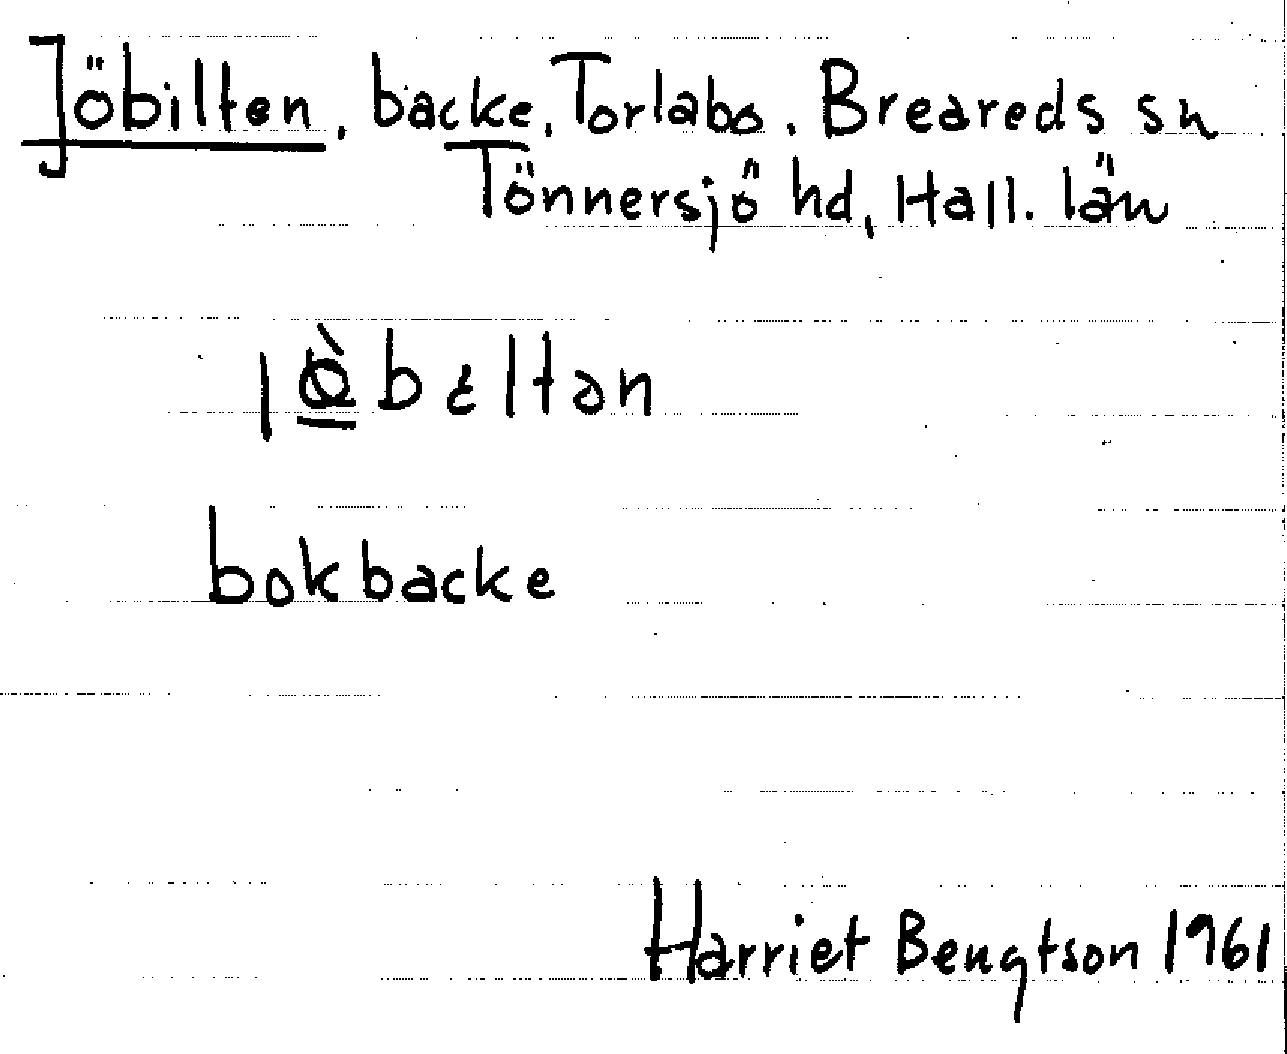 Jöbilten, backe, Torlabo. Breareds sn
Tönnersjö hd, Hall. län
bokbacke
Harriet Bengtson 1961